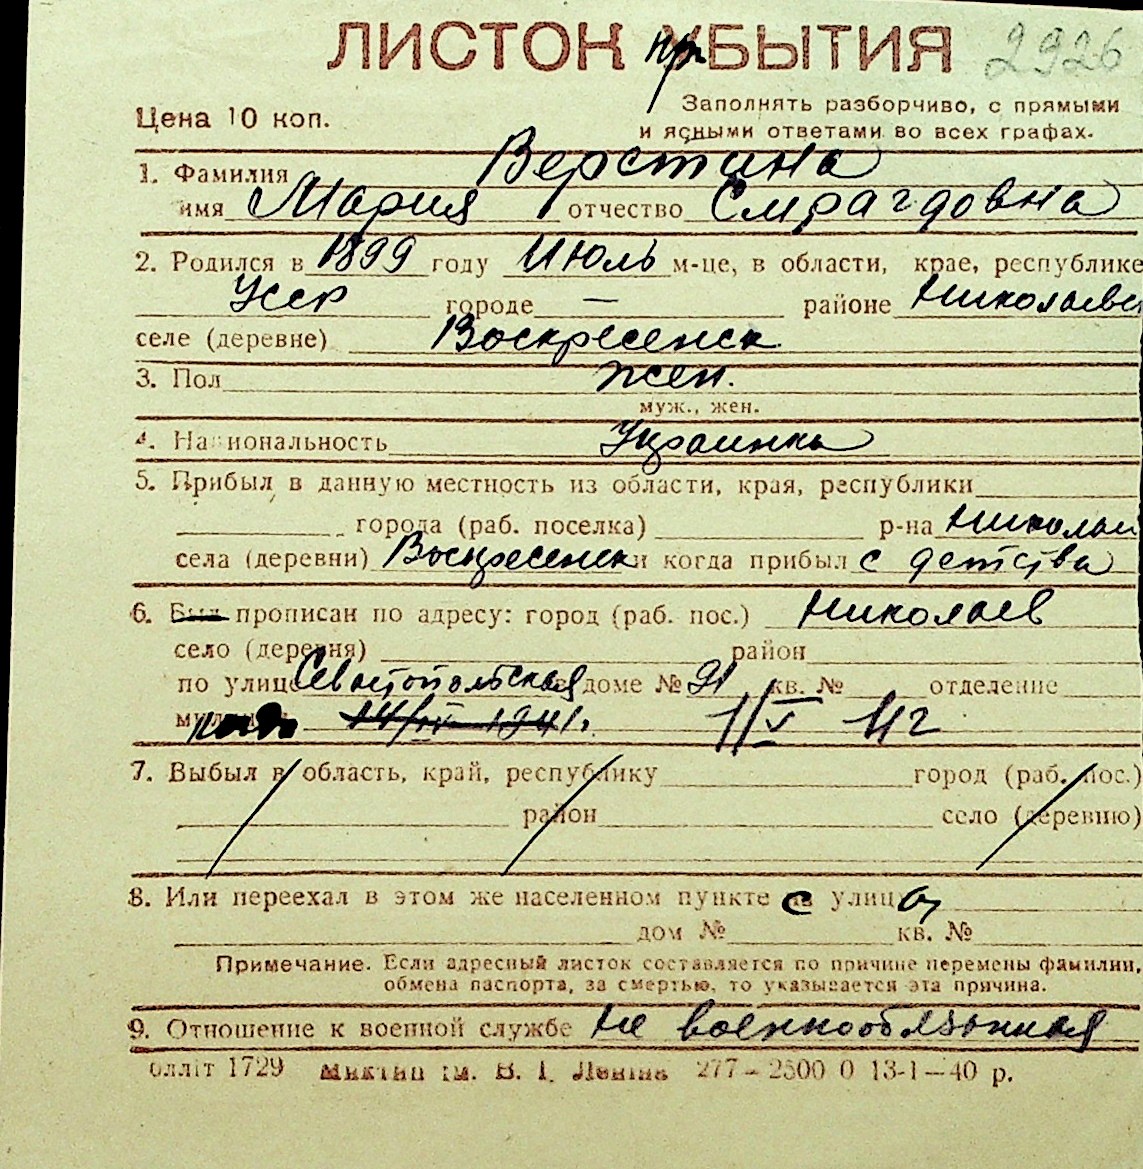 ЛИСТОК прБЫТИЯ 2926
Цена 10 коп.
Заполнять разборчиво, с прямыми
и ясными ответами во всех графах.
1. Фамилия Верстина
имя Мария отчество Смрагдовна
2. Родился в 1899 году Июль м-це, в области, крае, республике
Усср городе — районе Николаевск
селе (деревне) Воскресенск
3. Пол жен.
муж., жен.
4. Национальность Украинка
5. Прибыл в данную местность из области, края, республики
города (раб. поселка) р-на Николаи
села (деревни) Воскресенск и когда прибыл с детства
6. Был прописан по адресу: город (раб. пос.) Николаев
село (деревня) район
по улице Севастопольская доме № 21 кв. № отделение
14/IV 1941. 1/V 41г
7. Выбыл в область, край, республику город (раб. пос.)
район село (деревню)
8. Или переехал в этом же населенном пункте с улицы
дом № кв. №
Примечание. Если адресный листок составляется по причине перемены фамилии,
обмена паспорта, за смертью, то указывается эта причина.
9. Отношение к военной службе не военнообязанная
олліт 1729 ім. В. І. Леніна 277—2500 0 13-1—40 р.